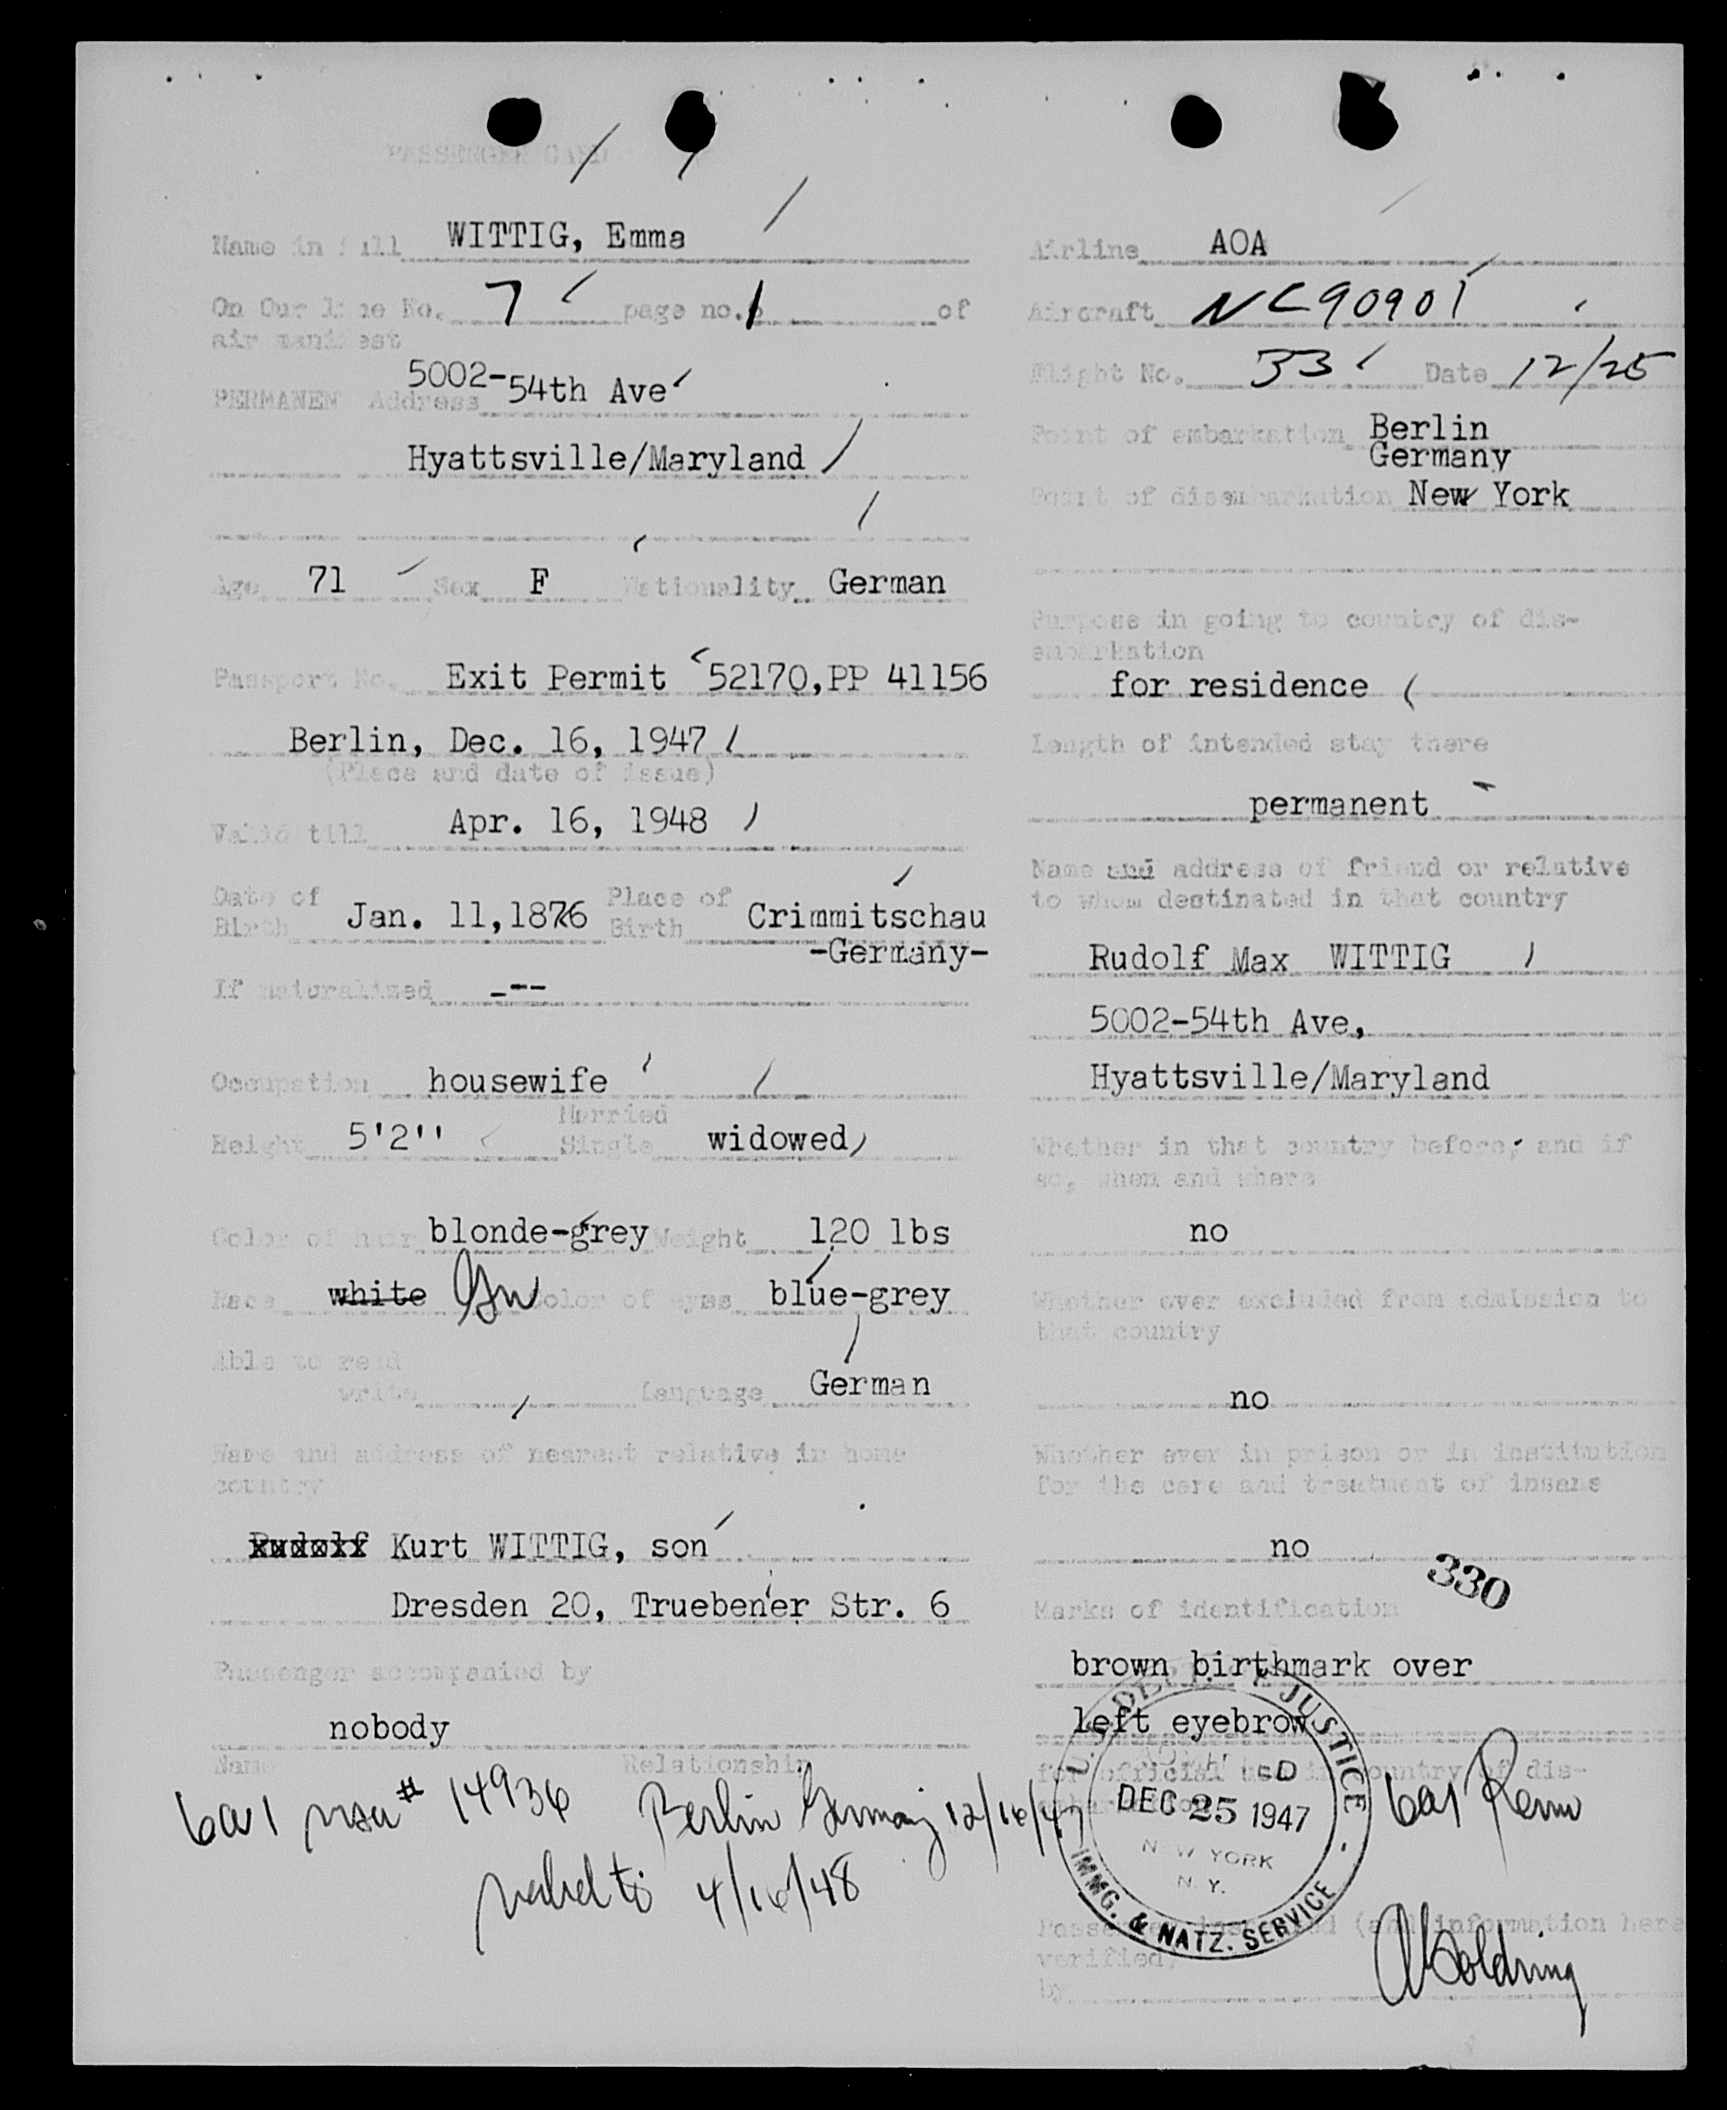 PASSENGER CARD
Name in full WITTIG, Emma
On Our line No. 7 page no. 1 of
air manifest
PERMANENT Address 5002-54th Ave
Hyattsville/Maryland
Age 71 Sex F Nationality German
Passport No. Exit Permit 52170,PP 41156
Berlin, Dec. 16, 1947
(Place and date of issue)
Valid till Apr. 16, 1948
Date of Birth Jan. 11,1876 Place of Birth Crimmitschau
-Germany-
If naturalized ---
Occupation housewife
Married
Height 5'2'' Single widowed
Color of hair blonde-grey Weight 120 lbs
Race white Color of eyes blue-grey
Able to read
write language German
Name and address of nearest relative in home
country
Rudolf Kurt WITTIG, son
Dresden 20, Truebener Str. 6
Passenger accompanied by
nobody
Name Relationship
6a1 visa # 14936 Berlin Germany 12/16/47
valid to 4/16/48
Airline AOA
Aircraft NC90901
Flight No. 33 Date 12/25
Point of embarkation Berlin
Germany
Point of disembarkation New York
Purpose in going to country of dis-
embarkation
for residence
Length of intended stay there
permanent
Name and address of friend or relative
to whom destinated in that country
Rudolf Max WITTIG
5002-54th Ave,
Hyattsville/Maryland
Whether in that country before, and if
so, when and where
no
Whether ever excluded from admission to
that country
no
Whether ever in prison or in institution
for the care and treatment of insane
no
330
Marks of identification
brown birthmark over
left eyebrow
for official use in country of dis-
embarkation
U.S. DEPT. OF JUSTICE
ADMITTED
DEC 25 1947
NEW YORK
N. Y.
IMMG. & NATZ. SERVICE
6a1 Perm
Passenger inspected (and information here
verified)
by